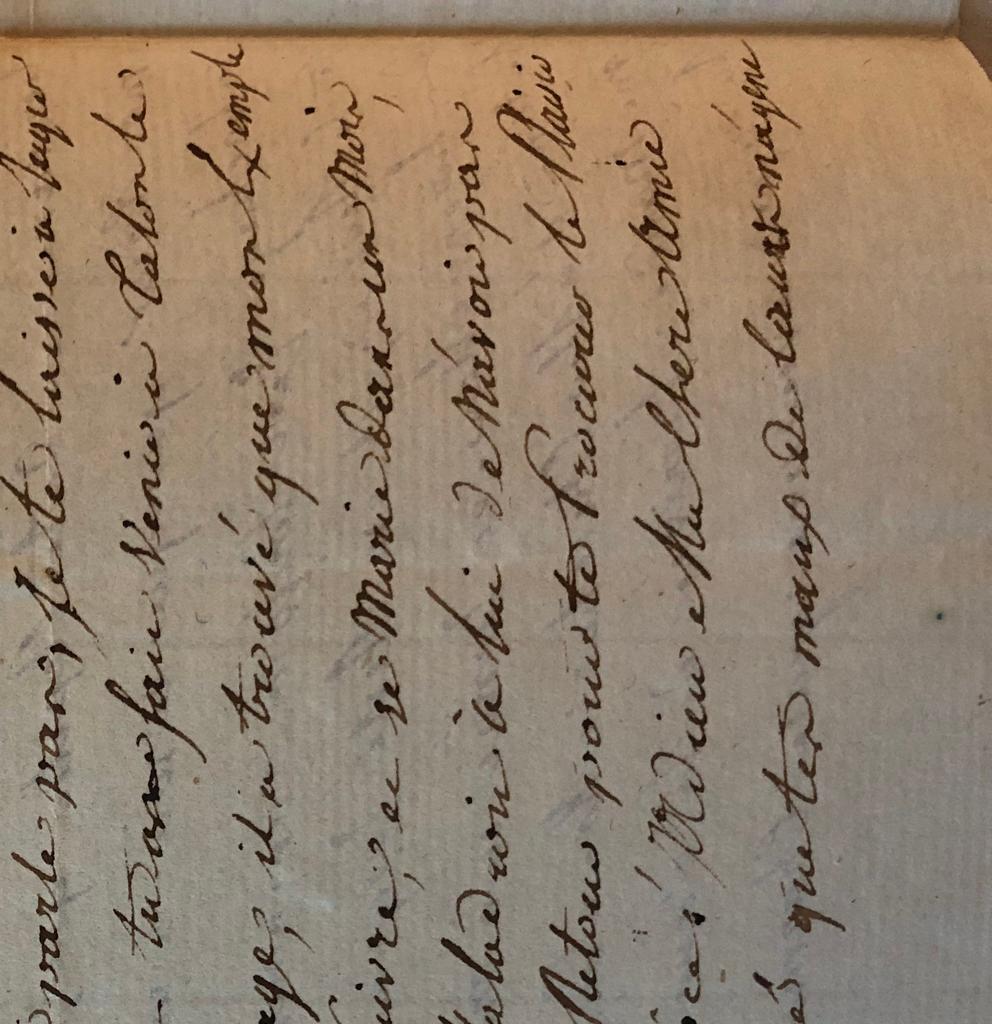 parle pas, Je te laisse à juger
tu ose faire venir Calonte
age, il a trouvé que mon Exemple
uivre, et se Marie dans un Mois,
alad
 à lui de N'avoir pas
Retour pour te Procurer le Plaisir
ces! Adieu Ma Chere Amie
és que tes maux de